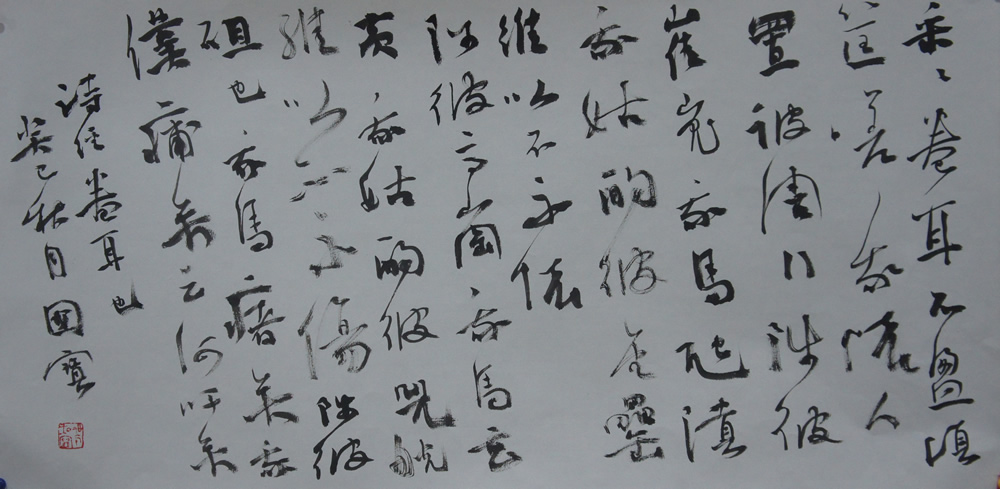 采〻卷耳不盈頃
筐嗟我懷人
置彼周行陟彼
崔嵬我馬虺隤
我姑酌彼金罍
維以不永懷
陟彼高岡我馬玄
黃我姑酌彼兕觥
維以不永傷陟彼
砠也我馬瘏矣我
僕痡矣云何吁矣
诗经卷耳也
癸巳秋月國寶